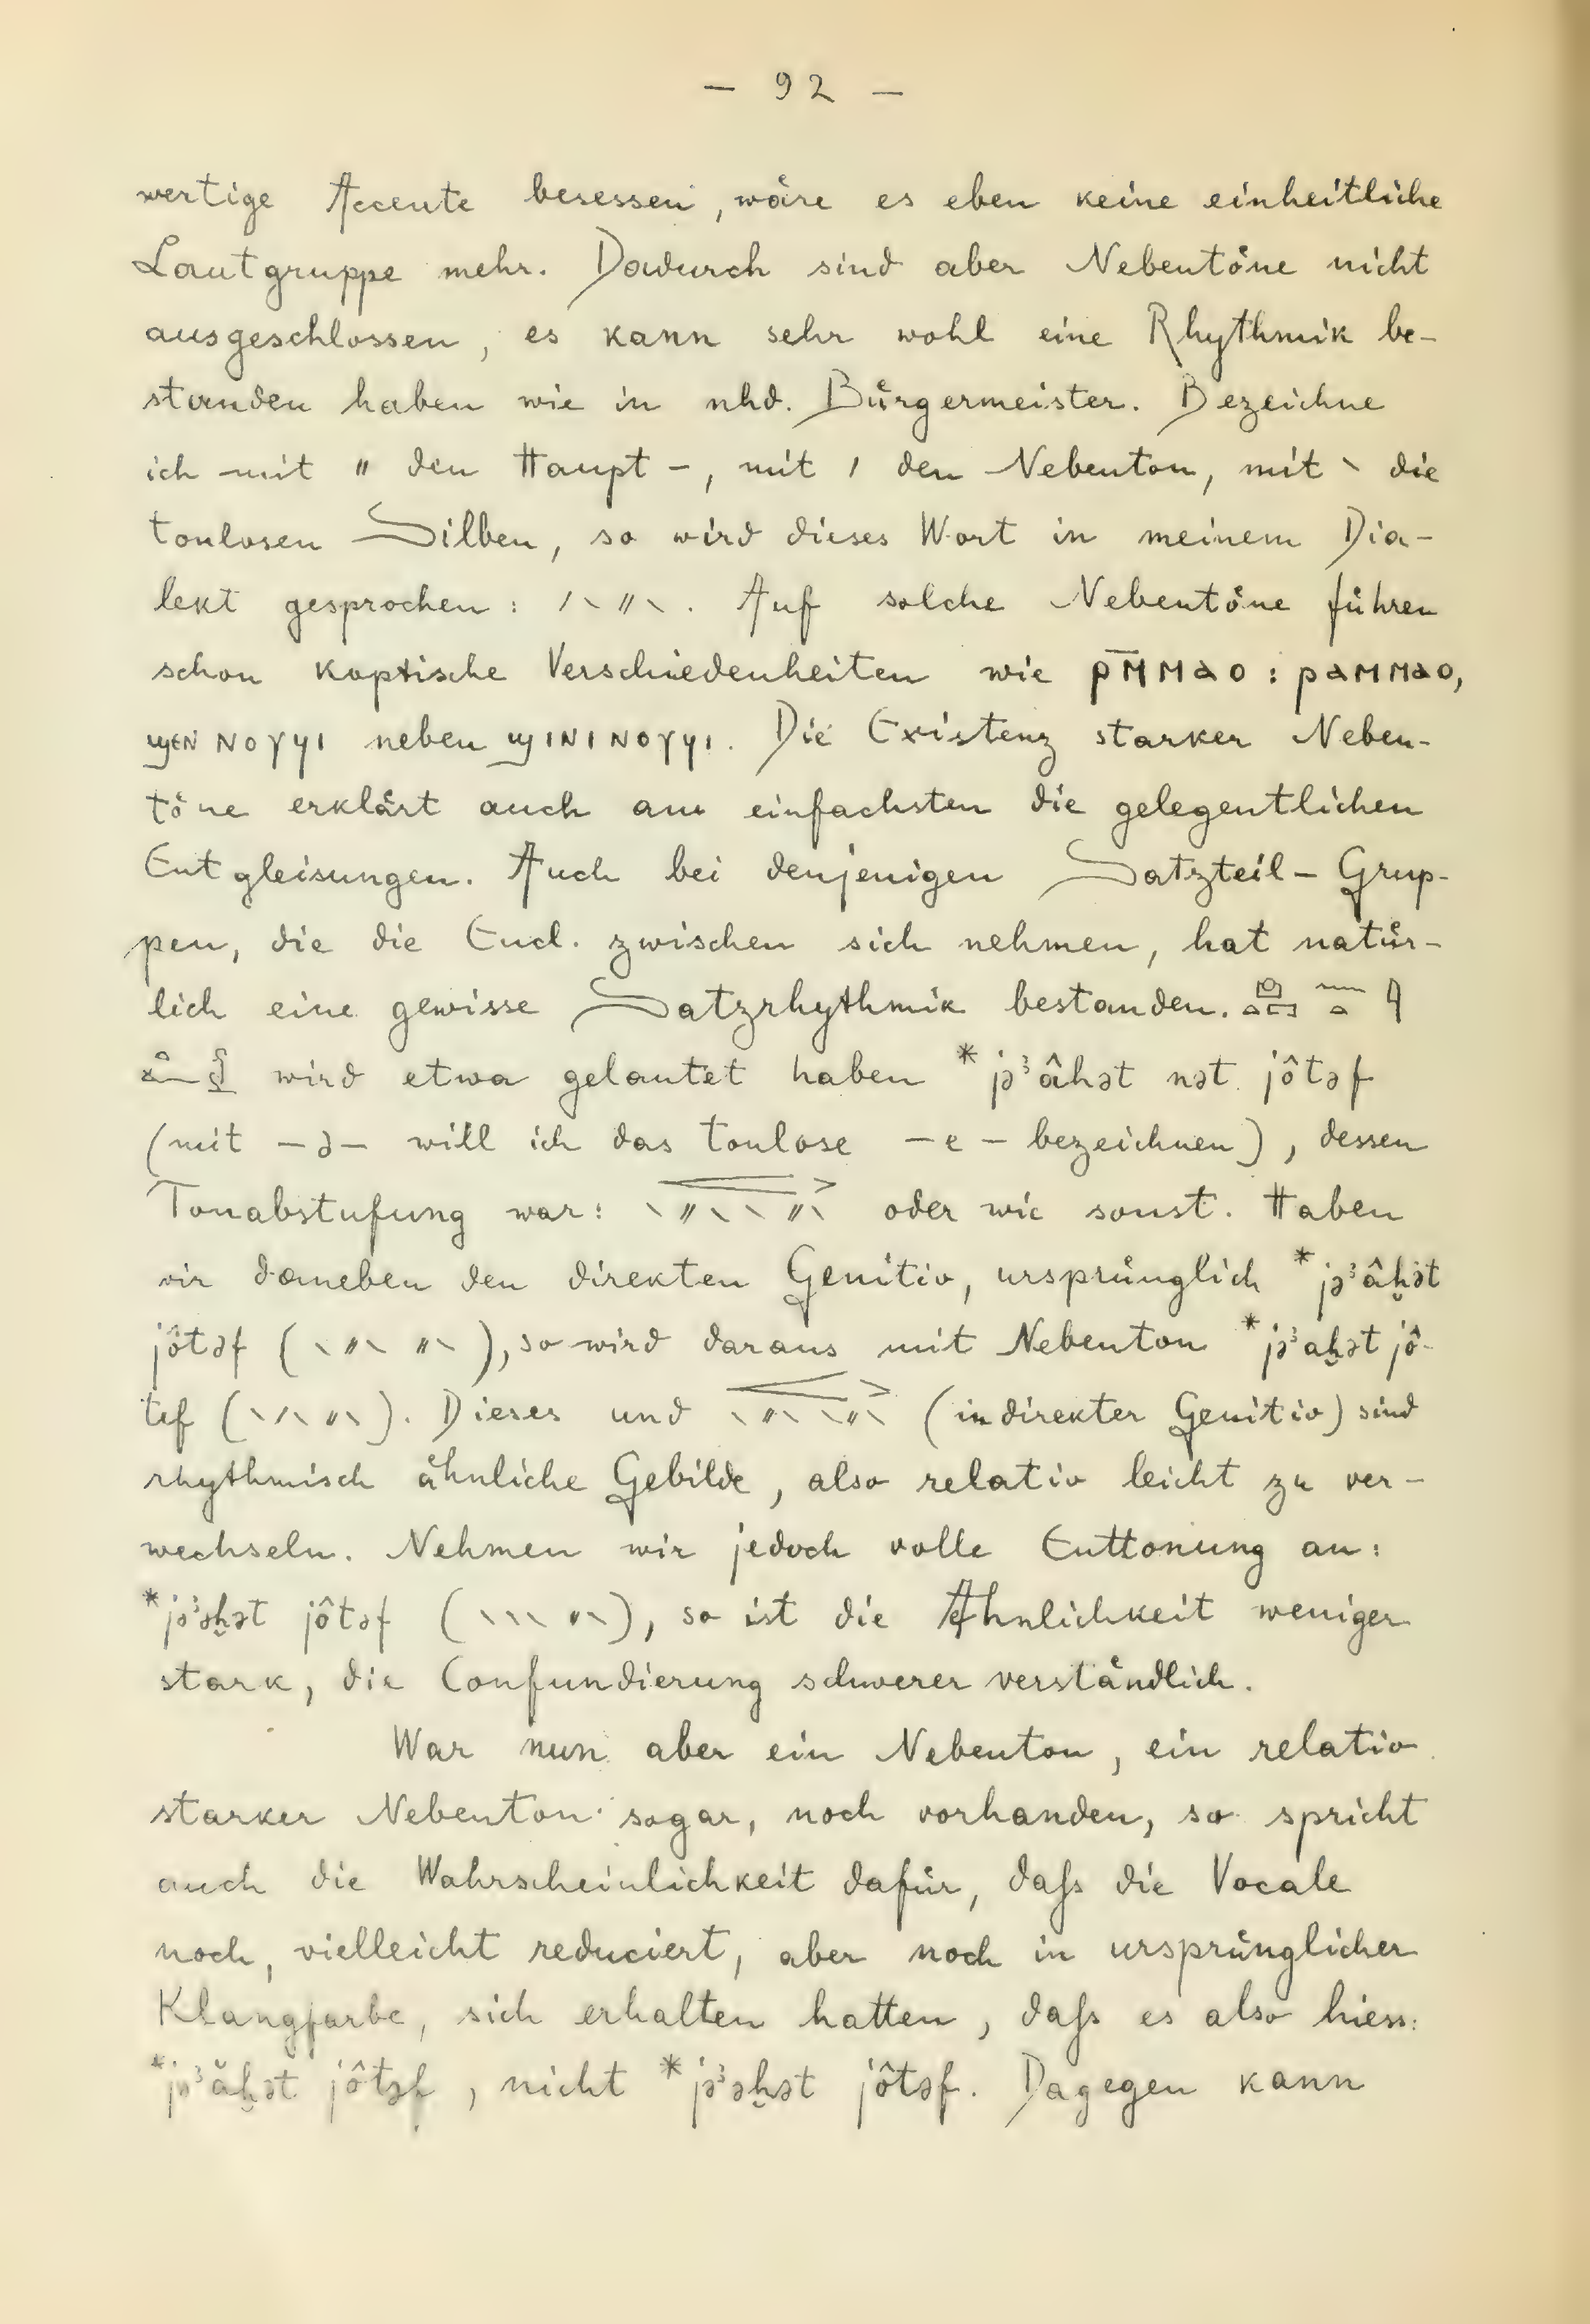 — 92 —
wertige Accente besessen, wäre es eben keine einheitliche
Lautgruppe mehr. Dadurch sind aber Nebentöne nicht
ausgeschlossen, es kann sehr wohl eine Rhythmik be-
standen haben wie in nhd. Bürgermeister. Bezeichne
ich mit 〃 den Haupt-, mit ′ den Nebenton, mit ‵ die
tonlosen Silben, so wird dieses Wort in meinem Dia-
lekt gesprochen: ′‵〃‵. Auf solche Nebentöne führen
schon koptische Verschiedenheiten wie ⲣⲙ̅ⲙⲁⲟ : ⲣⲁⲙⲙⲁⲟ,
ϣⲉⲛⲛⲟⲩϥⲓ neben ϣⲓⲛⲓⲛⲟⲩϥⲓ. Die Existenz starker Neben-
töne erklärt auch am einfachsten die gelegentlichen
Entgleisungen. Auch bei denjenigen Satzteil-Grup-
pen, die die Encl. zwischen sich nehmen, hat natür-
lich eine gewisse Satzrhythmik bestanden.
wird etwa gelautet haben *jəꜣâhət nət jôtəf
(mit -ə- will ich das tonlose -e- bezeichnen), dessen
Tonabstufung war: ‵〃‵‵〃‵ oder wie sonst. Haben
wir daneben den direkten Genitiv, ursprünglich *jəꜣâḫət
jôtəf (‵〃‵ 〃‵), so wird daraus mit Nebenton *jəꜣaḫət jô-
tef (‵′‵〃‵). Dieses und ‵〃‵‵〃‵ (indirekter Genitiv) sind
rhythmisch ähnliche Gebilde, also relativ leicht zu ver-
wechseln. Nehmen wir jedoch volle Enttonung an:
*jəꜣəḫət jôtəf (‵‵‵ 〃‵), so ist die Ähnlichkeit weniger
stark, die Confundierung schwerer verständlich.
War nun aber ein Nebenton, ein relativ
starker Nebenton sogar, noch vorhanden, so spricht
auch die Wahrscheinlichkeit dafür, daſs die Vocale
noch, vielleicht reduciert, aber noch in ursprünglicher
Klangfarbe, sich erhalten hatten, daſs es also hiess:
*jəꜣăḫət jôtəf, nicht *jəꜣəḫət jôtəf. Dagegen kann